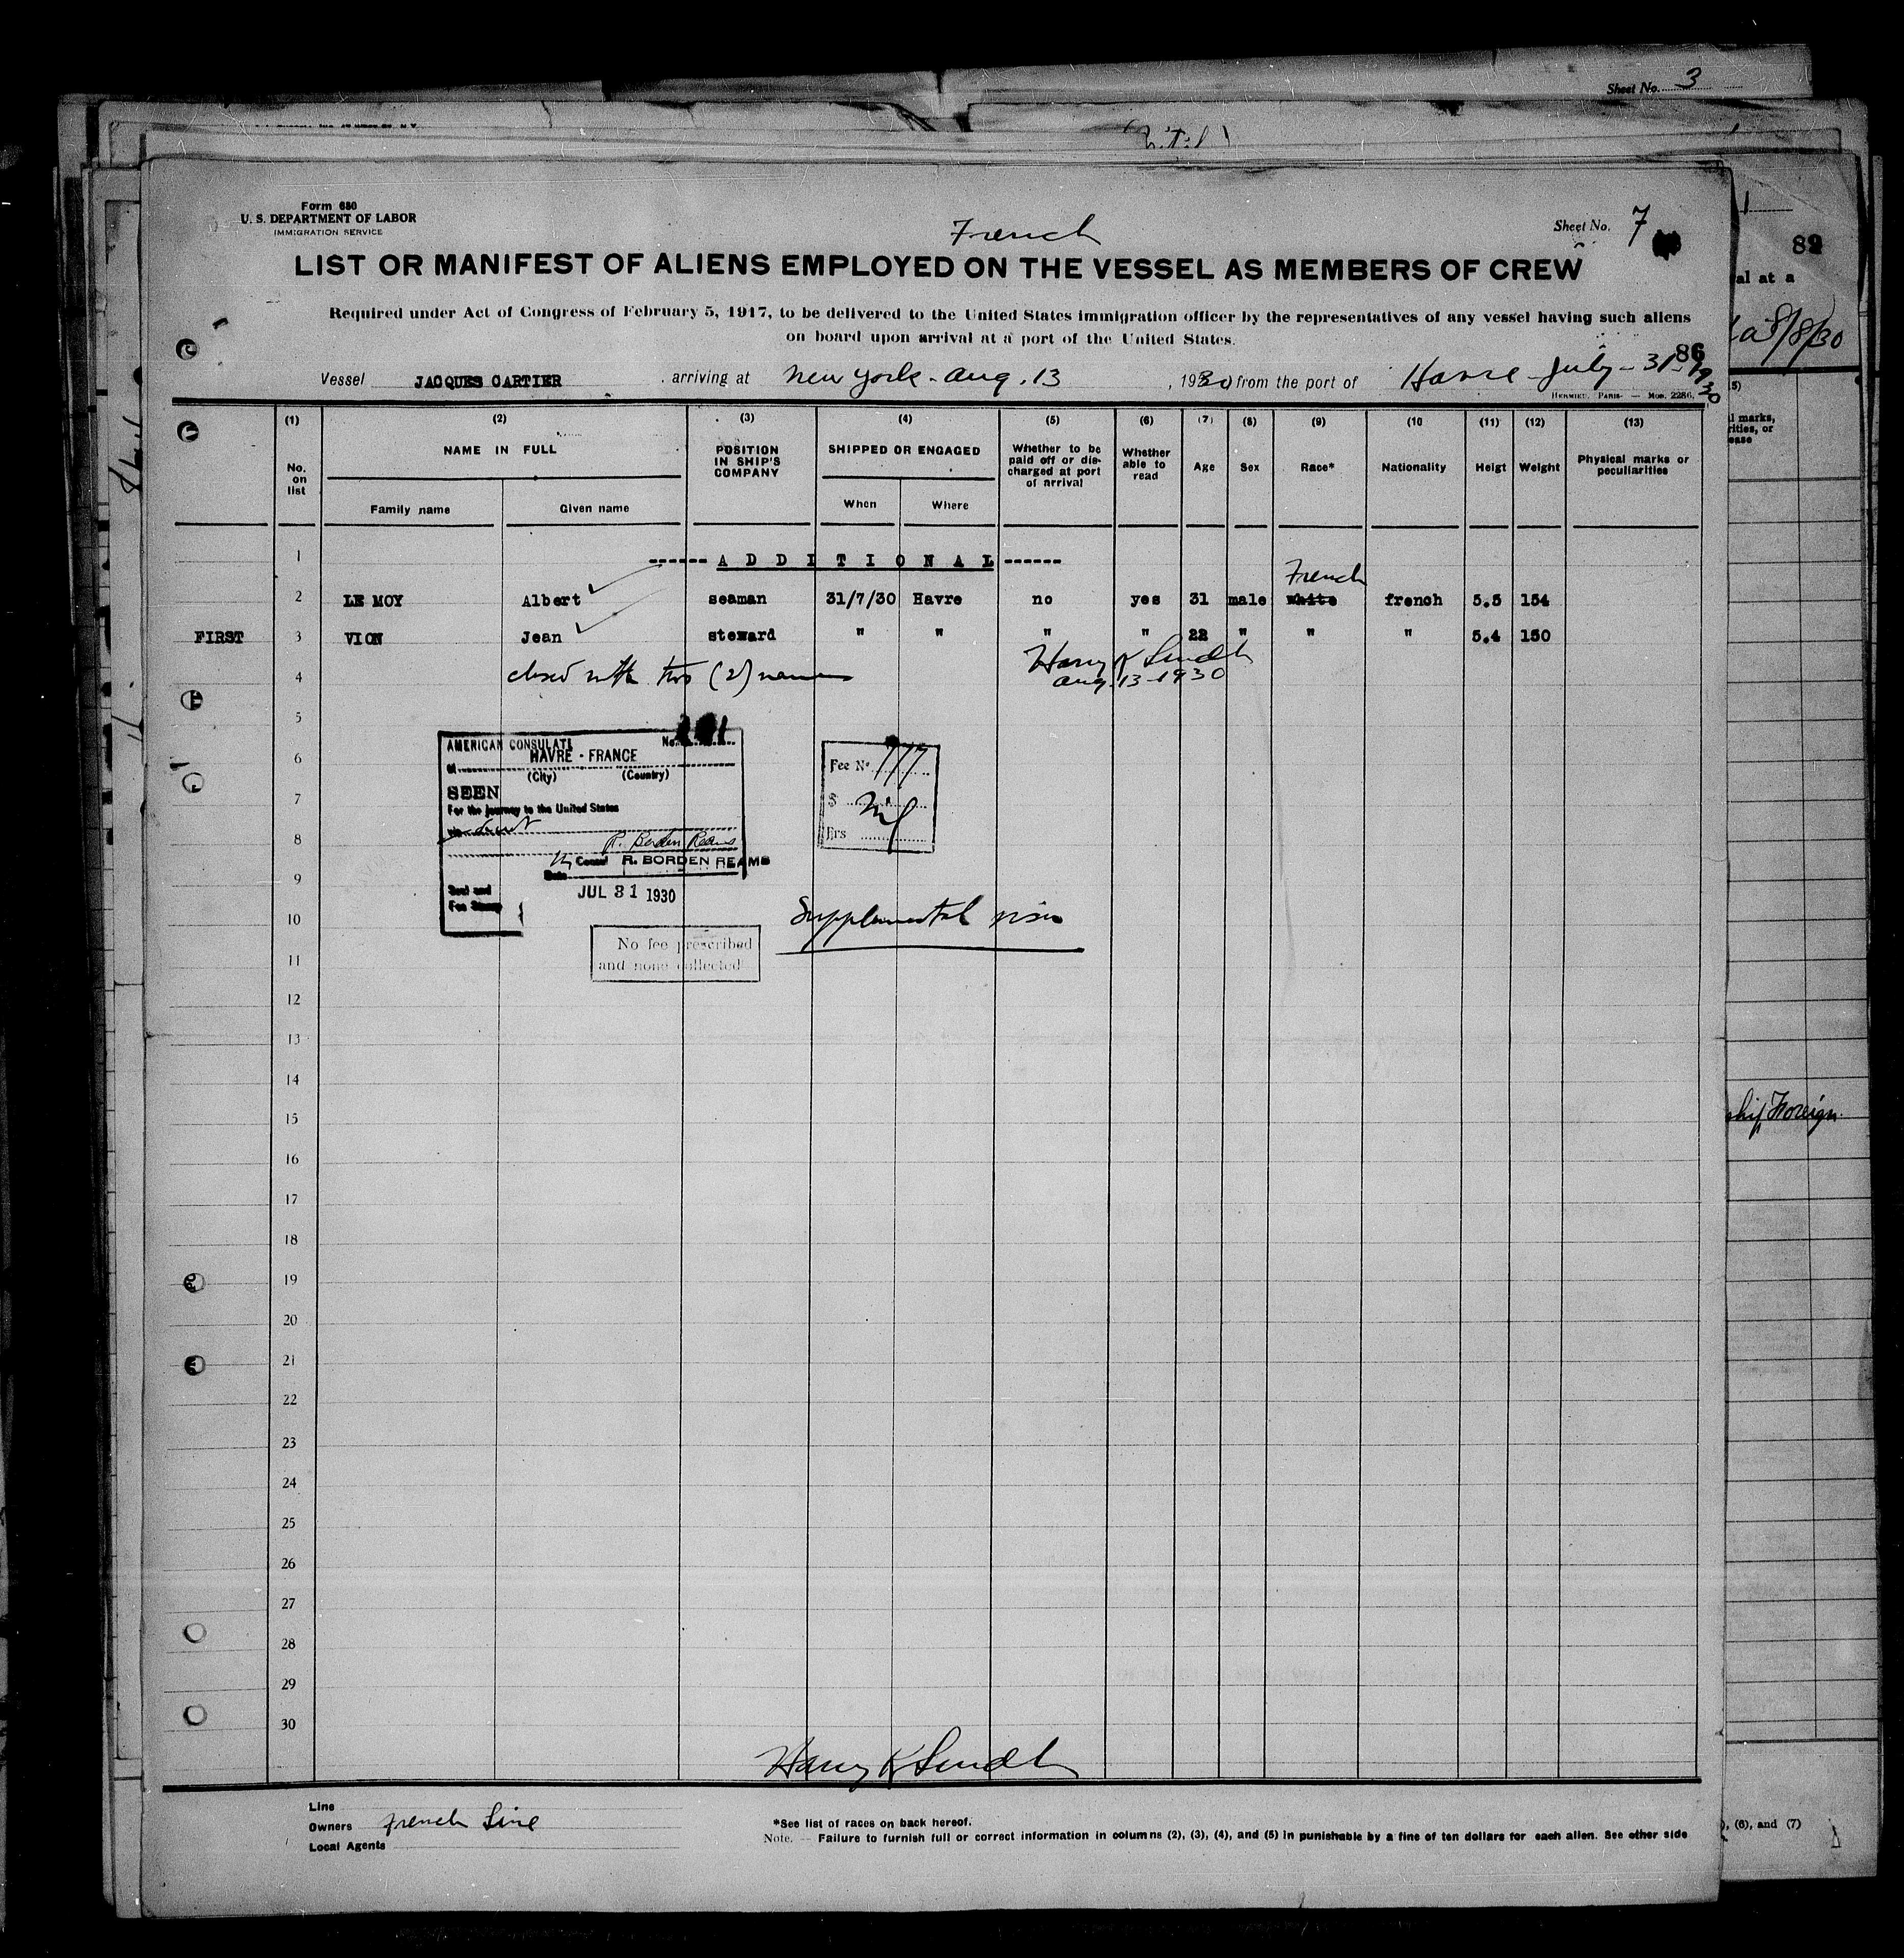 Sheet No. 3
Form 680
U. S. DEPARTMENT OF LABOR
IMMIGRATION SERVICE
French
Sheet No. 7
LIST OR MANIFEST OF ALIENS EMPLOYED ON THE VESSEL AS MEMBERS OF CREW
Required under Act of Congress of February 5, 1917, to be delivered to the United States immigration officer by the representatives of any vessel having such aliens
on board upon arrival at a port of the United States.
86
Vessel JACQUES CARTIER , arriving at New York - Aug. 13 , 1930 from the port of Havre - July - 31 - 1930
HERMIEU, PARIS. — MOD. 2286.
(1) (2) (3) (4) (5) (6) (7) (8) (9) (10 (11) (12) (13)
No. on list
NAME IN FULL
Family name
Given name
POSITION IN SHIP'S COMPANY
SHIPPED OR ENGAGED
When
Where
Whether to be paid off or discharged at port of arrival
Whether able to read
Age
Sex
Race*
Nationality
Heigt
Weight
Physical marks or peculiarities
1 ------ A D D I T I O N A L ------
French
2 LE MOY Albert seaman 31/7/30 Havre no yes 31 male white french 5.5 154
FIRST 3 VION Jean steward " " " " 22 " " " 5.4 150
4 closed with two (2) names
Aug. 13 - 1930
5
6
7
8
9
10
11
12
13
14
15
16
17
18
19
20
21
22
23
24
25
26
27
28
29
30
AMERICAN CONSULATE No.
at HAVRE - FRANCE
(City) (Country)
SEEN
For the journey to the United States
R. Borden Reams
Consul R. BORDEN REAMS
Date
JUL 31 1930
Seal and
Fee Stamp
Fee No 777
$ Nil
Frs
No fee prescribed
and none collected
Supplemental visa
Line
Owners French Line
Local Agents
*See list of races on back hereof.
Note. — Failure to furnish full or correct information in columns (2), (3), (4), and (5) in punishable by a fine of ten dollars for each alien. See other side
82
al at a
8/8/30
ship Foreign.
, (6), and (7)